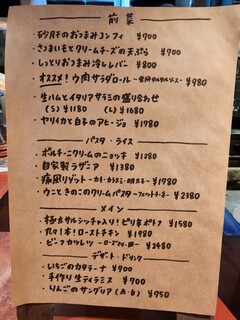 前菜
・砂肝のおつまみコンフィ ¥700
・さつまいもとクリームチーズの天ぷら ¥700
・しっとりおつまみ冷しレバー ¥800
・オススメ! 肉サラダロール ¥980
・生ハムとイタリアサラミの盛り合わせ
(S) ¥1180 (L) ¥1680
・ヤリイカと白子のアヒージョ ¥1980
パスタ・ライス
・ポルチーニクリームのニョッキ ¥1280
・自家製ラザニア ¥1380
・痛風リゾット ¥1780
・ウニときのこのクリームパスタ ¥2380
メイン
・極太サルシッチャ入り!ピリ辛ポトフ ¥1580
・丸々1本!ローストチキン ¥1980
・ビーフカツレツ ¥2480
デザート・ドリンク
・いちごのカタラーナ ¥700
・手作り生ティラミス ¥700
・りんごのサングリア (赤・白) ¥750